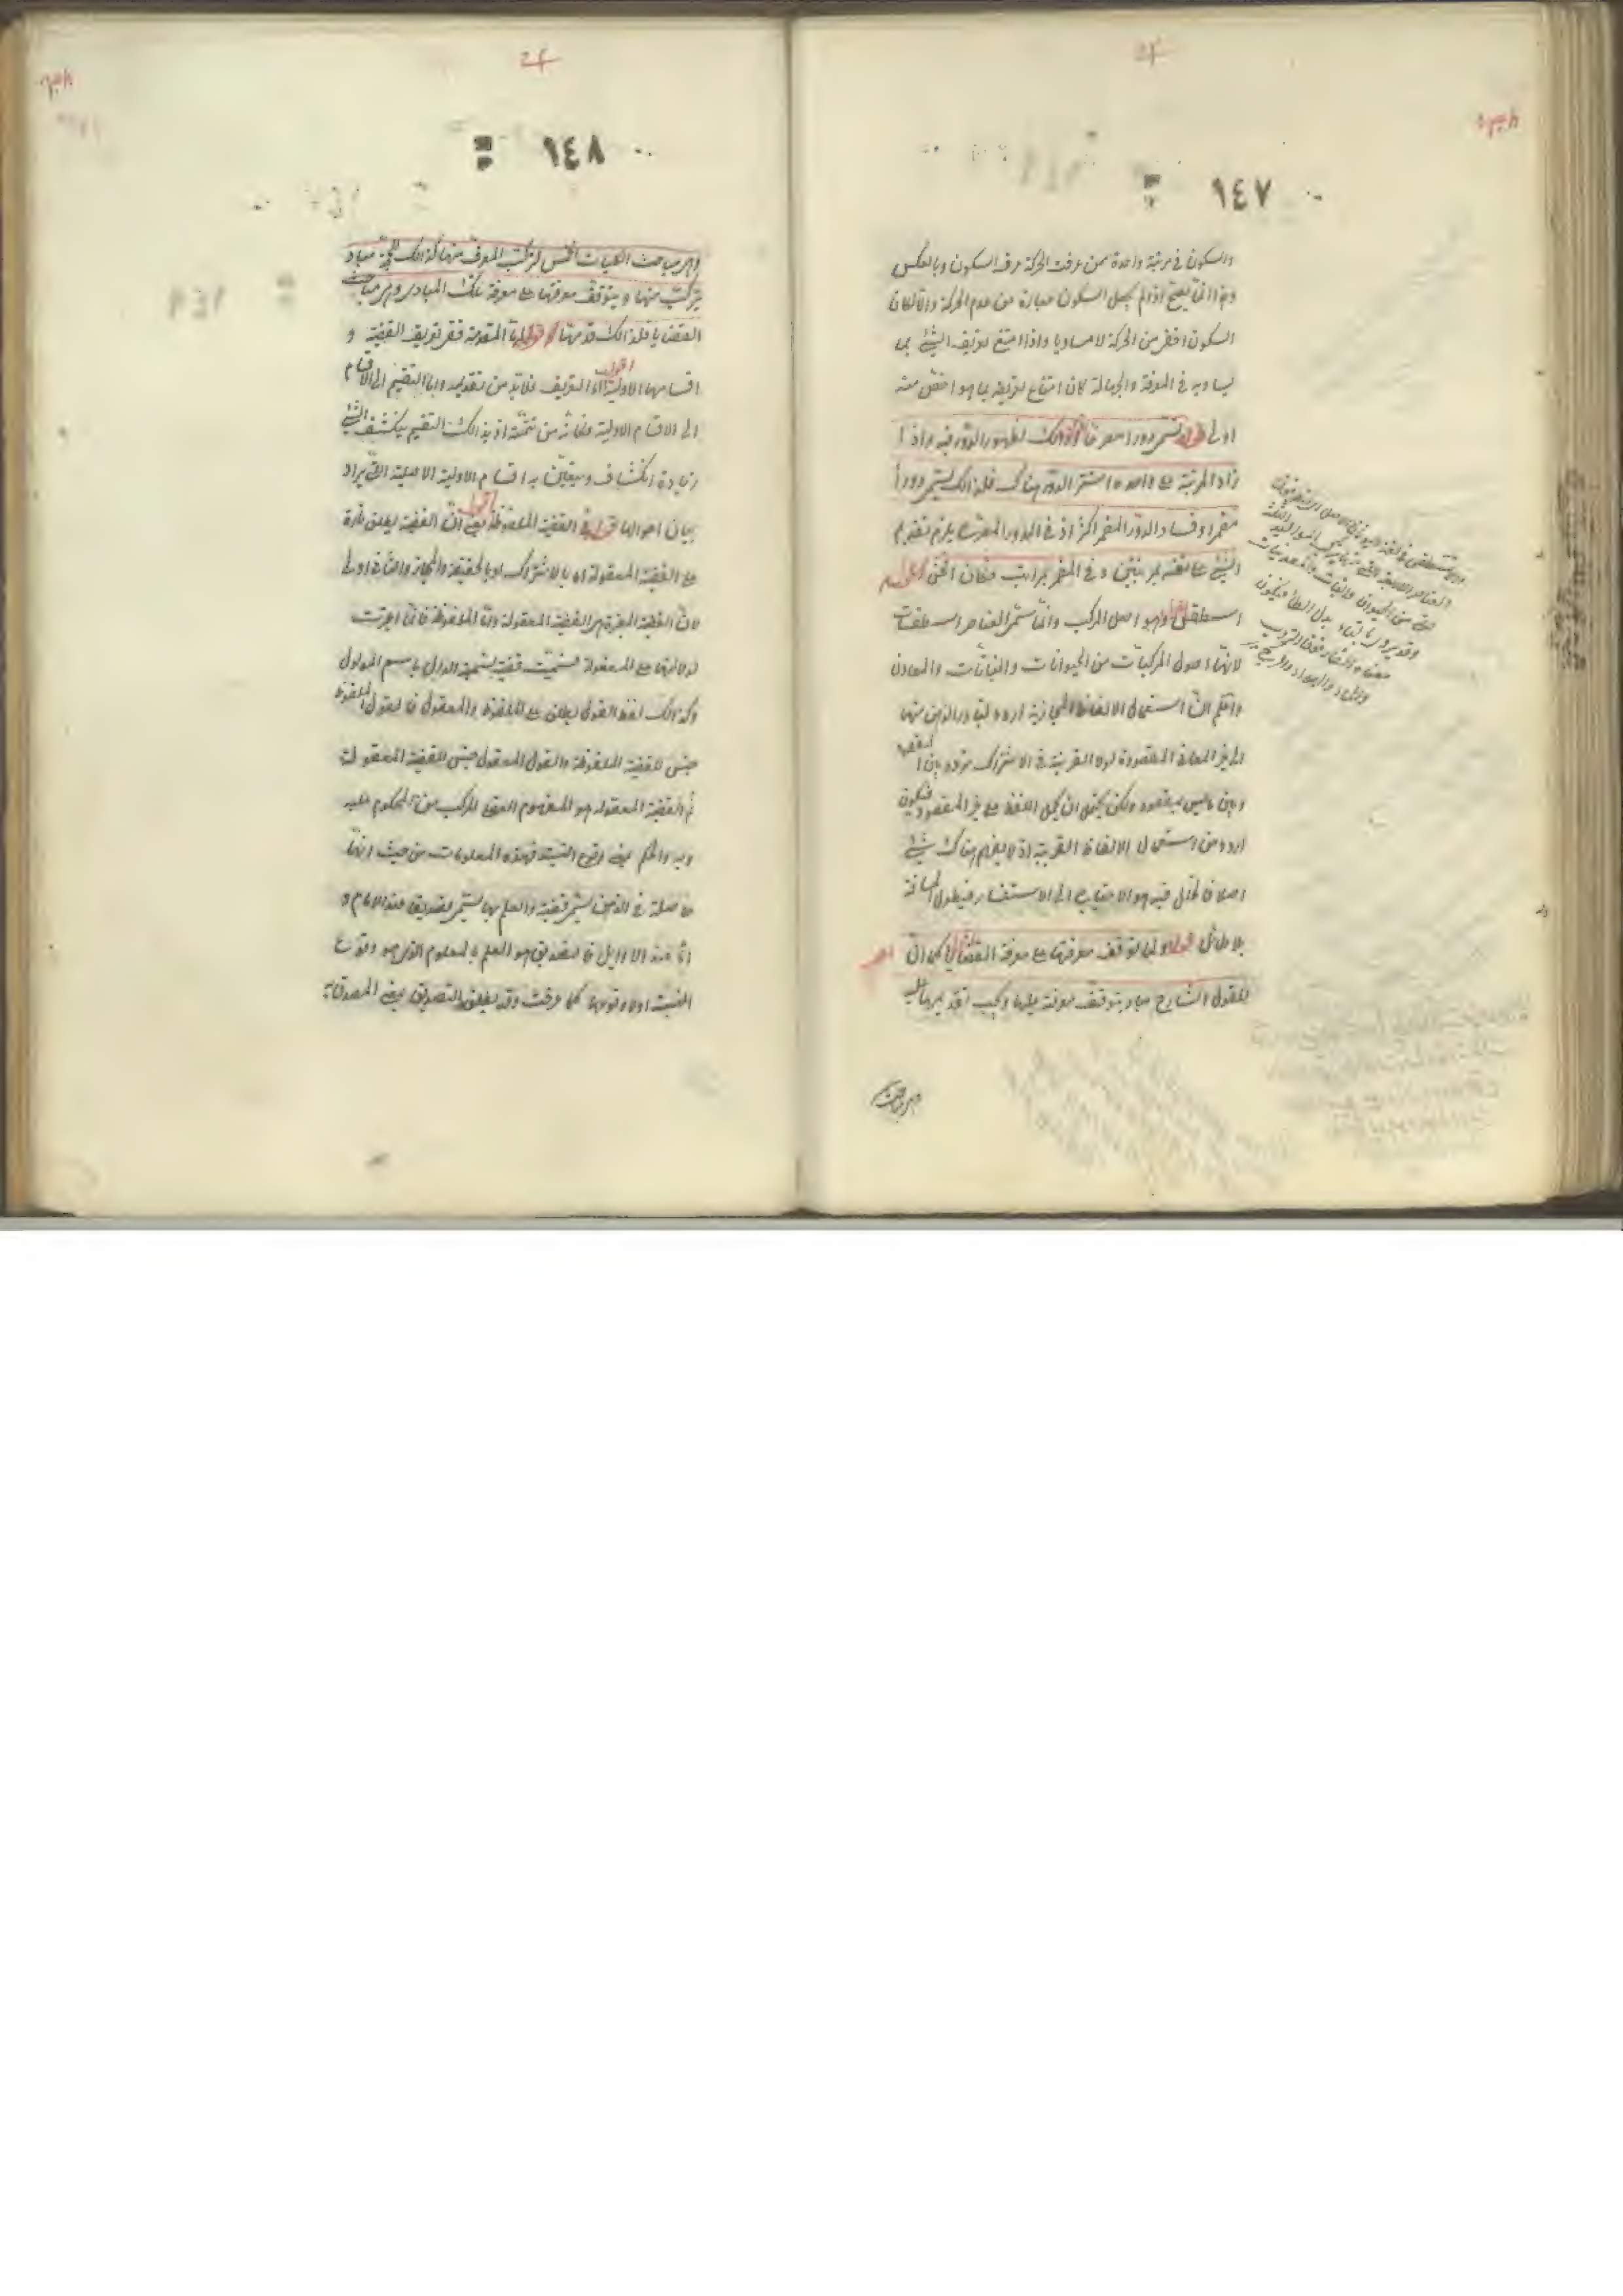 ١٤٧
والسكون في مرتبة واحدة فمن عرف الحركة عرف السكون وبالعكس
وهذا انما يصح اذا لم يجعل السكون عبارة عن عدم الحركة والا لكان
السكون اخفى من الحركة لا مساويا واذا امتنع تعريف الشئ بما
يساويه في المعرفة والجهالة كان امتناع تعريفه بما هو اخفى منه
اولى قوله يسمى دورا مصرحا اقول وذلك لظهور الدور فيه واذا
زاد المرتبة على واحدة استتر الدور هناك فلذلك يسمى دورا
مضمرا وفساد الدور المضمر اكثر اذ في الدور المصرح يلزم تقديم
الشئ على نفسه بمرتبتين وفي المضمر بمراتب فكان افحش قوله
اسطقس اقول وهو اصل المركب وانما سمى العناصر اسطقسات
لانها اصول المركبات من الحيوانات والنباتات والمعادن
واعلم ان استعمال الالفاظ المجازية اردء لتبادر الذهن منها
الى غير المعاني المقصودة لولا القرينة وفي الاشتراك تردد بين المقصود
وبين ما ليس بمقصود ولكن يحتمل ان يحمل اللفظ على غير المقصود فيكون
اردء من استعمال الالفاظ الغريبة اذ لا يفهم هناك شئ
اصلا فالخلل فيه هو الاحتياج الى الاستفسار فيطول المسافة
بلا طائل قوله ولما توقف معرفتها على معرفة القضايا اقول كما ان
للقول الشارح مباد يتوقف معرفته عليها ويجب تقديمها عليه
وهي مباحث
١٤٨
وهي مباحث الكليات الخمس لتركب المعرف منها كذلك للحجة مباد
يتركب منها ويتوقف معرفتها على معرفة تلك المبادى وهي مباحث
القضايا فلذلك قدمها قوله اما المقدمة ففي تعريف القضية و
اقسامها الاولية اقول اما التعريف فلا بد من تقديمه واما التقسيم الى الاقسام
الى الاقسام الاولية فكانه من تتمته اذ بذلك التقسيم ينكشف الشئ
زيادة انكشاف ويتعين به اقسام الاولية الاصلية التي يراد
بيان احوالها قوله في القضية الملفوظة اقول يعني ان القضية يطلق تارة
على القضية المعقولة اما بالاشتراك او بالحقيقة والمجاز والثاني اولى
لان القضية المعتبرة هي القضية المعقولة واما الملفوظة فانما اعتبرت
لدلالتها على المعقولة فسميت قضية تسمية الدال باسم المدلول
وكذلك لفظ القول يطلق على الملفوظ والمعقول فالقول الملفوظ
جنس للقضية الملفوظة والقول المعقول جنس للقضية المعقولة
ثم القضية المعقولة هو المفهوم العقلي المركب من المحكوم عليه
وبه والحكم بمعنى وقوع النسبة فهذه المعلومات من حيث انها
حاصلة في الذهن يسمى قضية والعلم بها يسمى تصديقا عند الامام و
اما عند الاوايل فالتصديق هو العلم بالمعلوم الذي هو وقوع
النسبة اولا وقوعها كما عرفت وقد يطلق التصديق بمعنى المصدق به